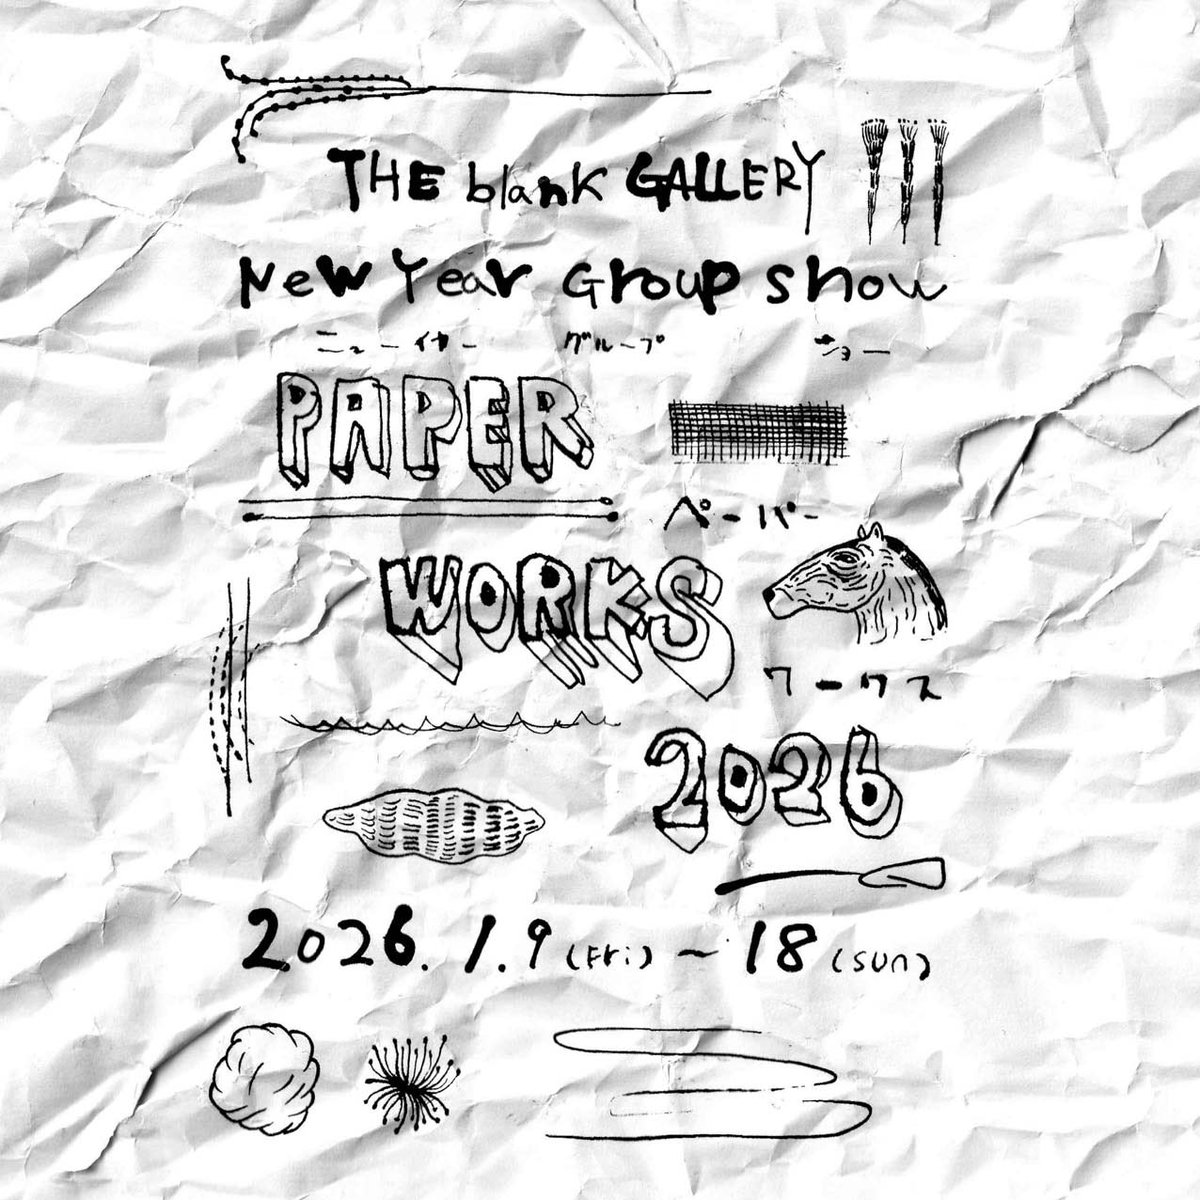 THE blank GALLERY
New Year Group show
ニューイヤー グループ ショー
PAPER
ペーパー
WORKS
ワークス
2026
2026. 1. 9 (Fri) ~ 18 (sun)